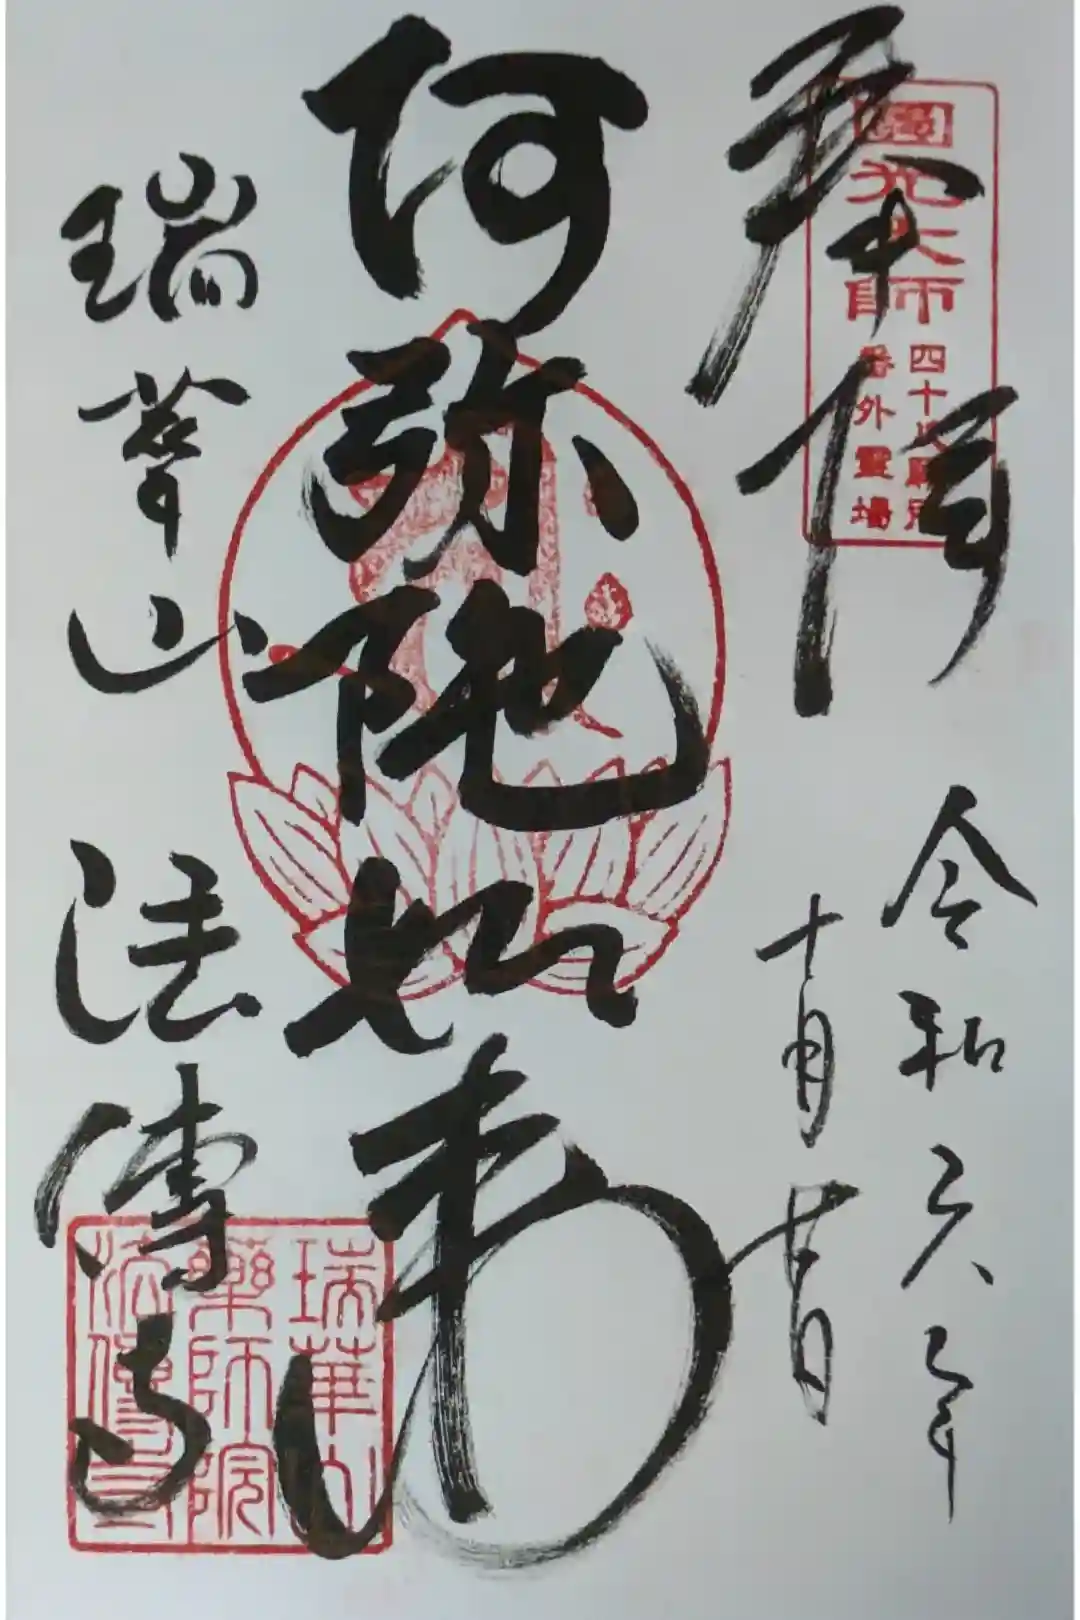 奉拝
圓光大師
四十八願所
番外霊場
令和六年
十月廿日
阿弥陀如来
瑞華山
法傳寺
瑞華山
薬師院
法傳寺